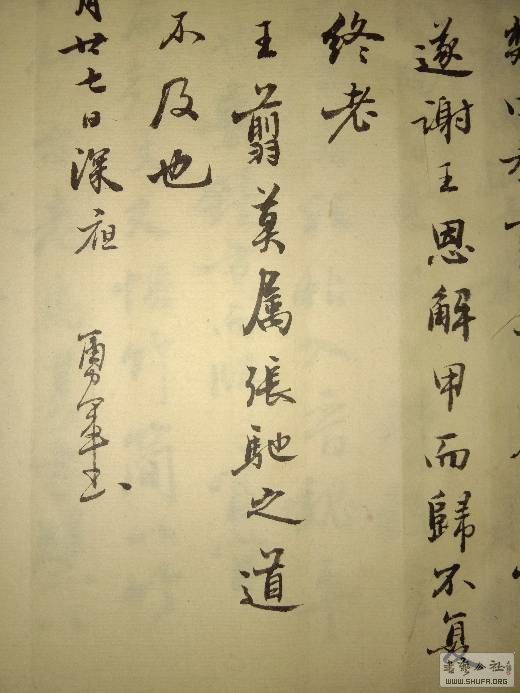 遂謝王恩解甲而歸不复
終老
王翦莫属張馳之道
不及也
月廿七日深
勇軍书
書藝公社
WWW.SHUFA.ORG